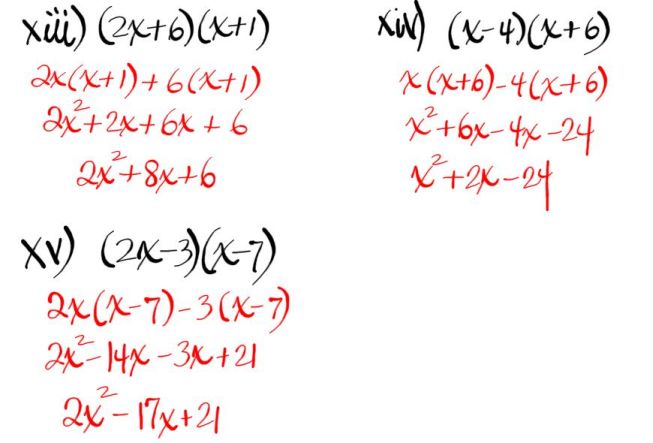 xiii) (2x+6)(x+1)
2x(x+1)+6(x+1)
2x²+2x+6x+6
2x²+8x+6
xiv) (x-4)(x+6)
x(x+6)-4(x+6)
x²+6x-4x-24
x²+2x-24
xv) (2x-3)(x-7)
2x(x-7)-3(x-7)
2x²-14x-3x+21
2x²-17x+21